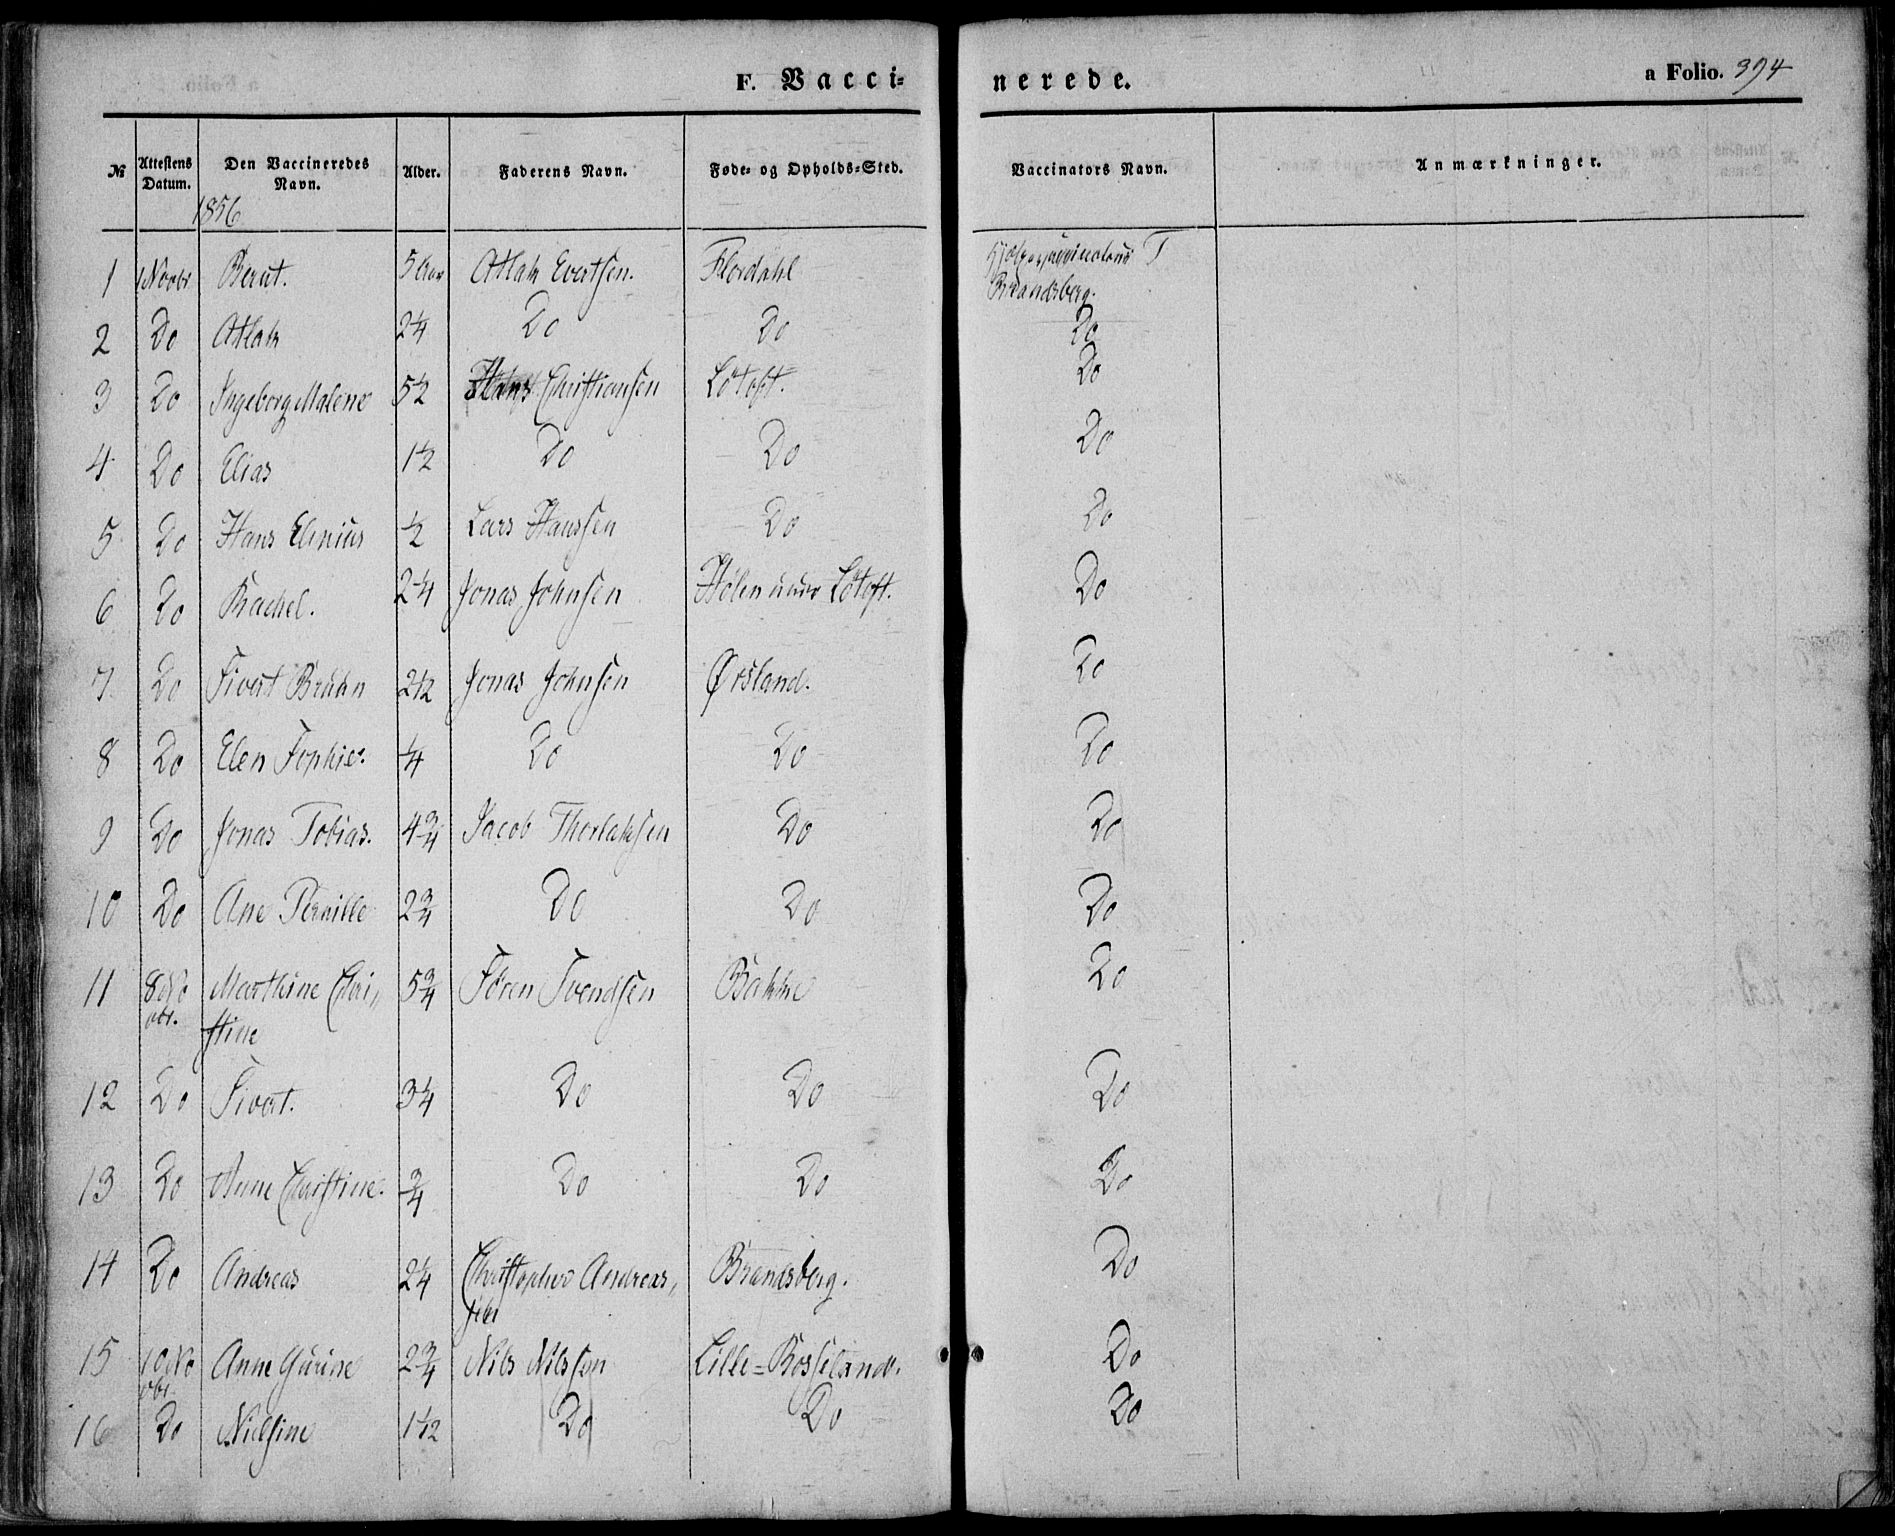 F. Vacci-
nerede.
a Folio. 394
№ Attestens Datum. Den Vaccineredes Navn. Alder. Faderens Navn. Føde- og Opholds-Sted. Vaccinators Navn. Anmærkninger.
1856
1 1 Novbr Bernt. 5 Aar Atlak Evertsen. Flordahl
Brandsberg.
2 Do Atlak 2¼ Do Do Do
3 Do Ingeborg Malene 5½ Hans Christiansen Løtoft. Do
4 Do Elias 1½ Do Do Do
5 Do Hans Elenius ½ Lars Hanssen Do Do
6 Do Rachel. 2¼ Jonas Johnsen Hølen under Løtoft. Do
7 Do Sivert Bruhn 2½ Jonas Johnsen Ørsland. Do
8 Do Elen Sophie. ¼ Do Do Do
9 Do Jonas Tobias. 4¾ Jacob Thorlaksen Do Do
10 Do Ane Pernille 2¾ Do Do Do
11 8 No Marthine Chri„ 5¾ Søren Svendsen Bakke Do
vbr. stine
12 Do Sivert. 3¼ Do Do Do
13 Do Anne Christine. ¾ Do Do Do
14 Do Andreas 2¼ Christopher Andreas„ Brandsberg. Do
sen
15 10 No Anne Gurine 2¾ Nils Nilssen Lille=Rosseland. Do
vbr.
16 Do Nielsine 1½ Do Do Do